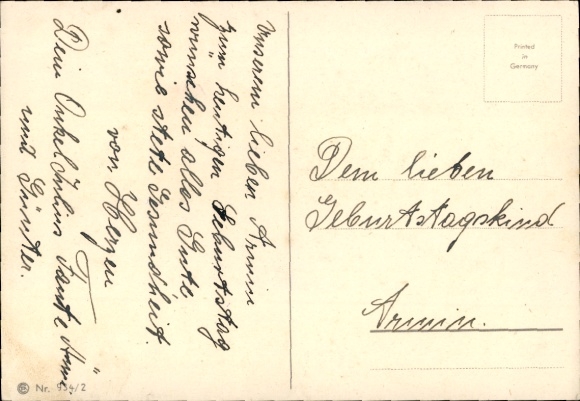 Unserem lieben Armin
zum heutigen Geburtstag
wünschen alles Gute
sowie stete Gesundheit.
von Herzen
Dein Onkel Julius Tante Änne
und Günter.
Printed
in
Germany
Dem lieben
Geburtstagskind
Armin.
Nr. 934/2